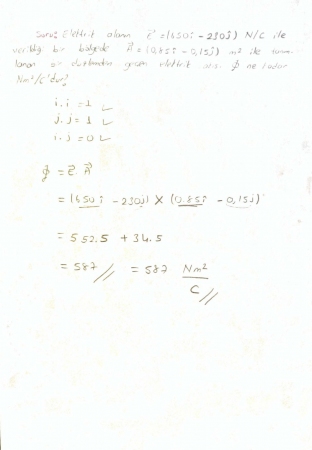 Soru: Elektrik alanın E = (650i - 230j) N/C ile
verildiği bir bölgede A = (0,85i - 0,15j) m² ile tanım-
lanan bir düzlemden geçen elektrik akısı Φ ne kadar
Nm²/C'dur?
i.i = 1
j.j = 1
i.j = 0
Φ = E.A
= (650i - 230j) X (0.85i - 0,15j)
= 552.5 + 34.5
= 587 // = 587 Nm²/C //